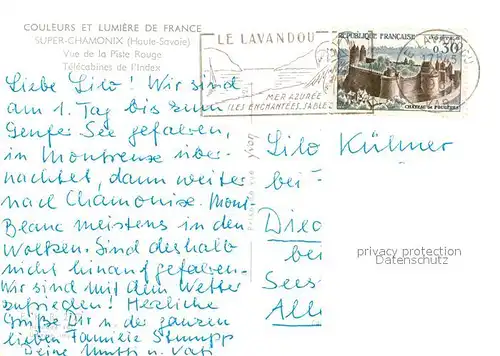 COULEURS ET LUMIÈRE DE FRANCE
SUPER-CHAMONIX (Haute-Savoie)
Vue de la Piste Rouge
Télécabines de l'Index
LE LAVANDOU
MER AZURÉE
ILES ENCHANTÉES, SABLE
RÉPUBLIQUE FRANÇAISE
0,30
CHÂTEAU DE FOUGÈRES
Liebe Lilo! Wir sind
am 1. Tag bis zum
Genfer See gefahren,
in Montreux über-
nachtet, dann weiter
nach Chamonix. Mont
Blanc meistens in den
Wolken. Sind deshalb
nicht hinaufgefahren.
Wir sind mit dem Wetter
zufrieden! Herzliche
Grüße Dir u. der ganzen
lieben Familie Stumpp
Deine Mutti u. Vati
Lilo Kühner
bei
be
Sees
All
privacy protection
Datenschutz